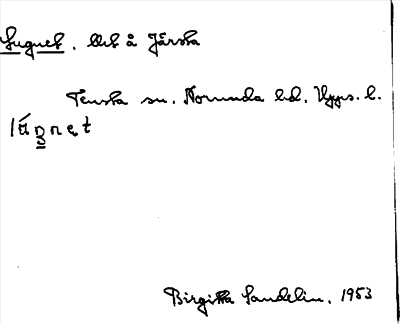 Lugnet. Urb å Järsta
Tensta sn. Norunda hd. Upps. l.
Birgitta Sandelin. 1953